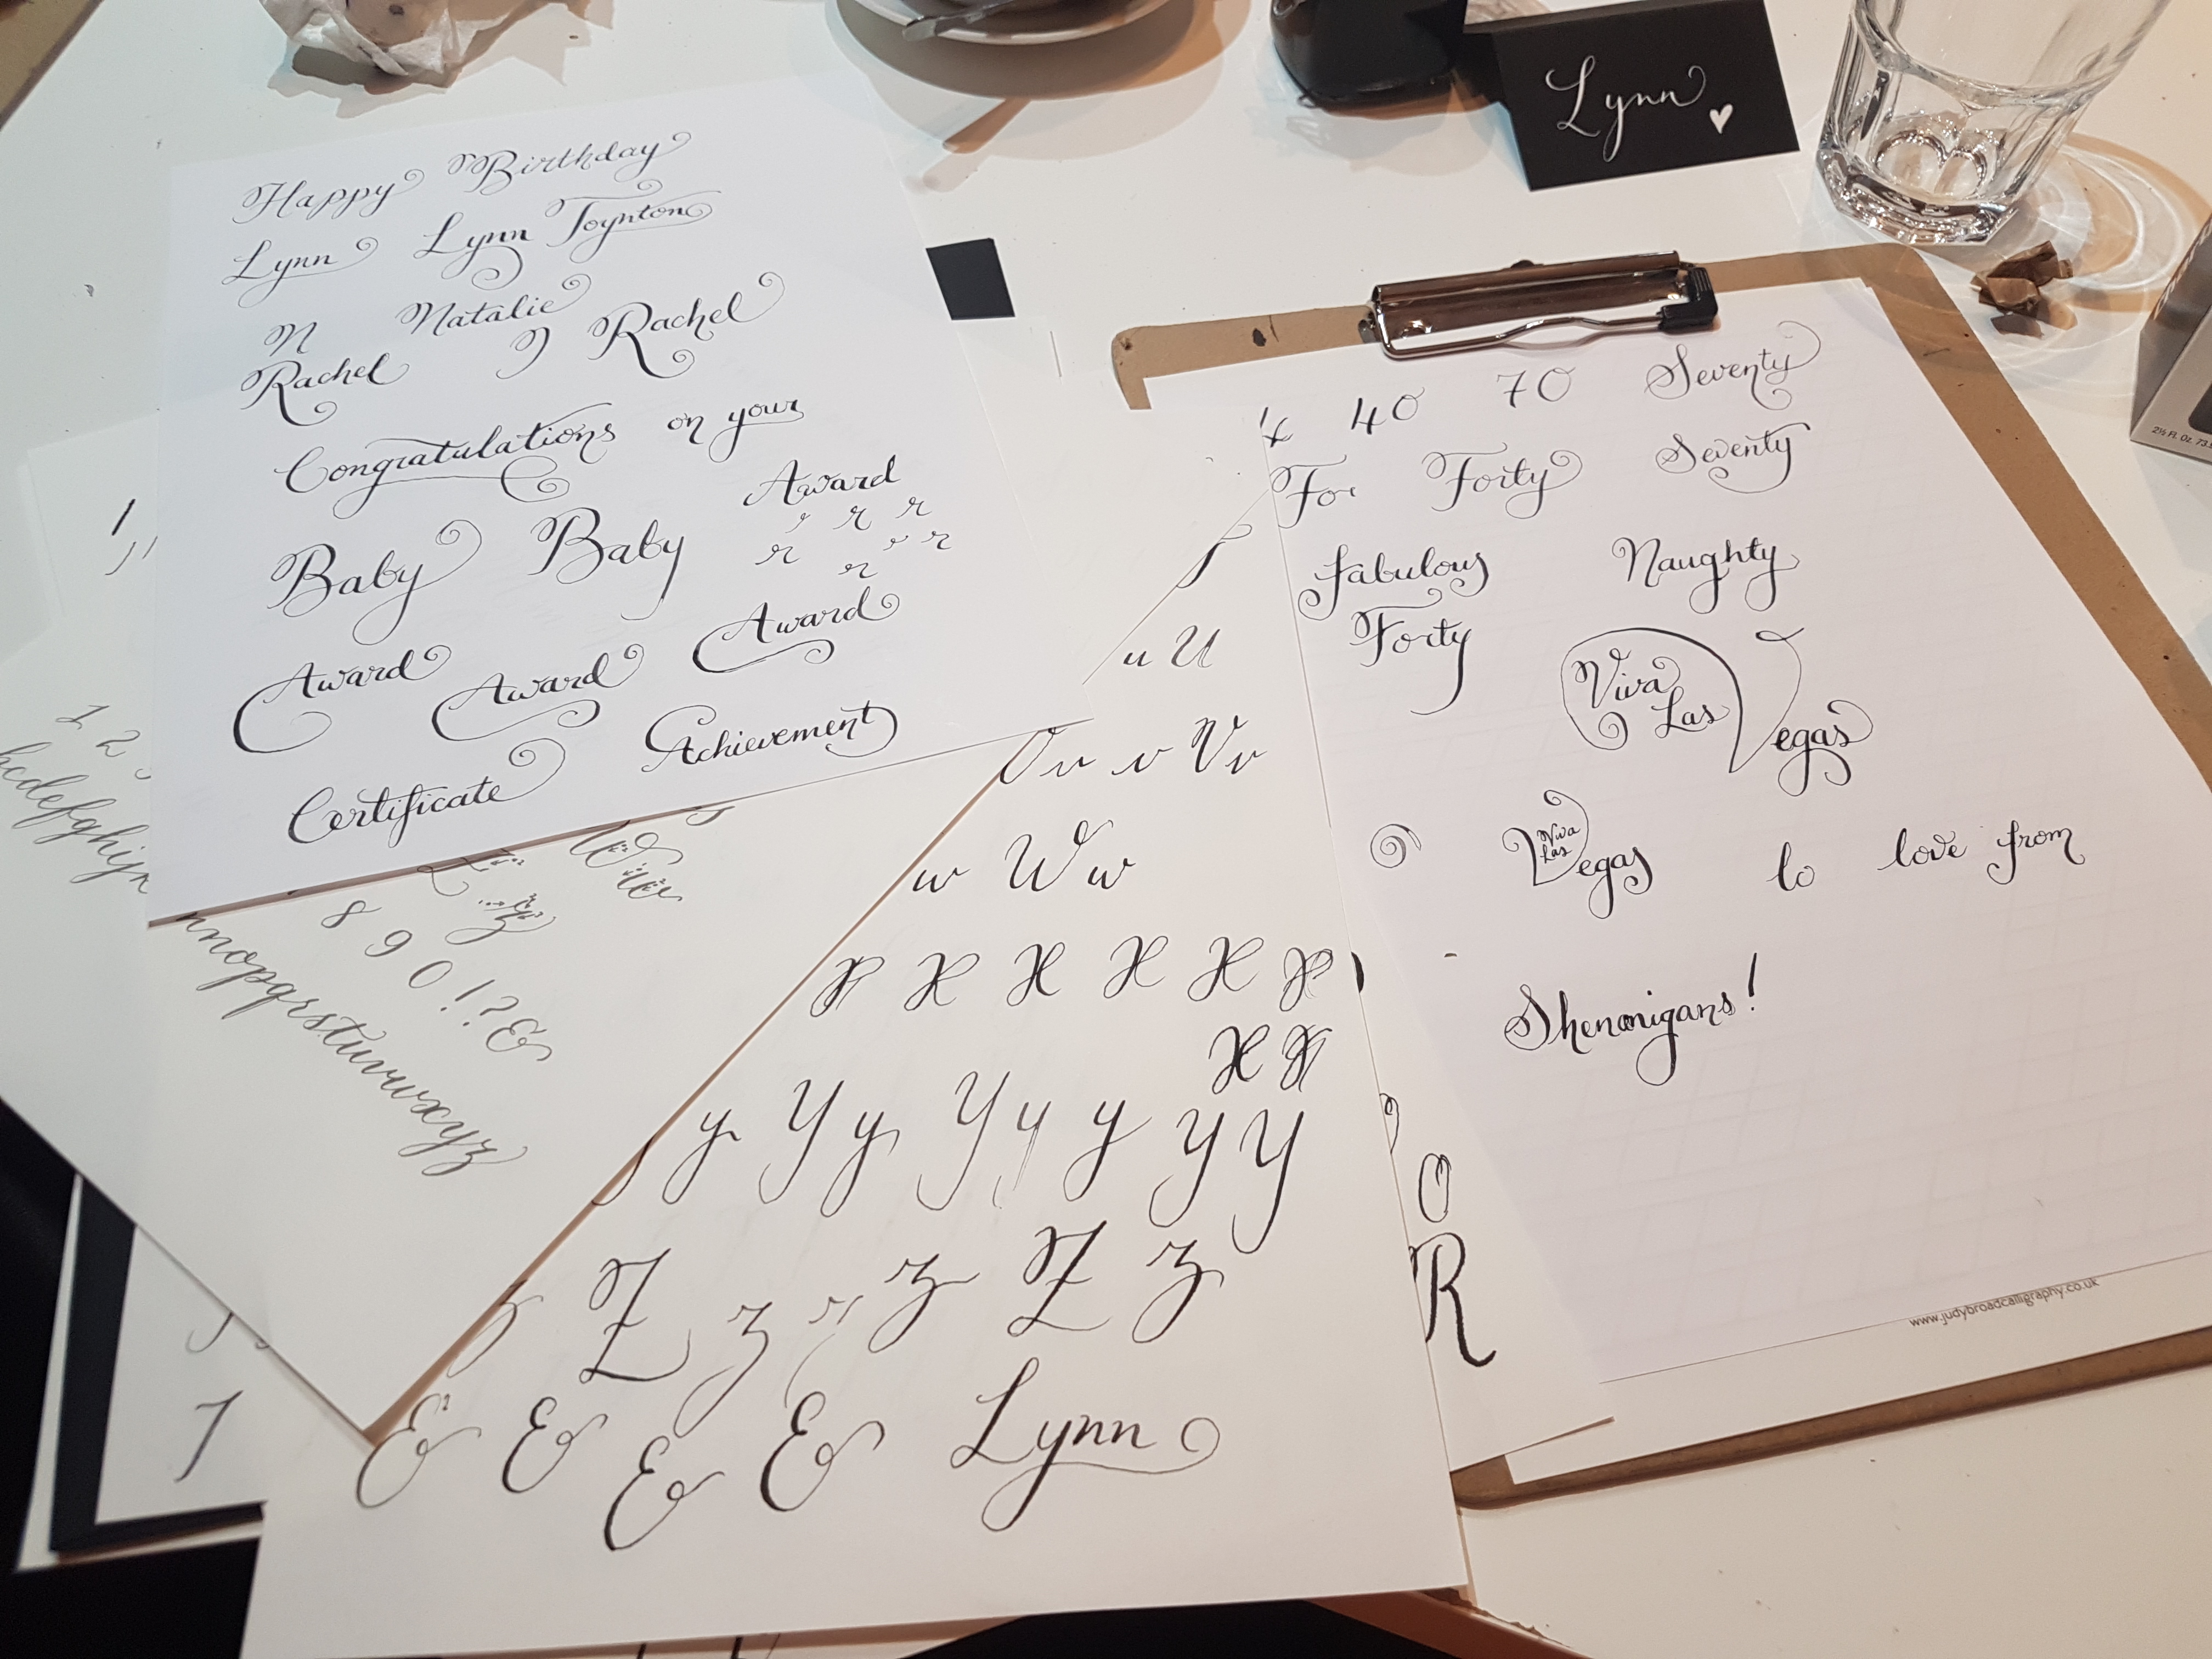 Lynn
Happy Birthday
Lynn Lynn Toynton
N Natalie
Rachel Rachel
Congratulations on your
Award
r r r
r r r
r
Baby Baby
Award Award Award
Certificate Achievement
40 70 Seventy
For Forty Seventy
Fabulous Naughty
Forty
Viva Las Vegas
Viva Las Vegas to love from
Shenanigans!
www.judybroadcalligraphy.co.uk
1 2
bcdefghijn
8 9 0 ! ? &
nnopqrstuvwxyz
u U
V v v V v
w W w
X X X X X X
X X
y Y y Y y y y y
Z z z Z z
& & & & Lynn
O
R
7
2½ Fl. Oz. 73.